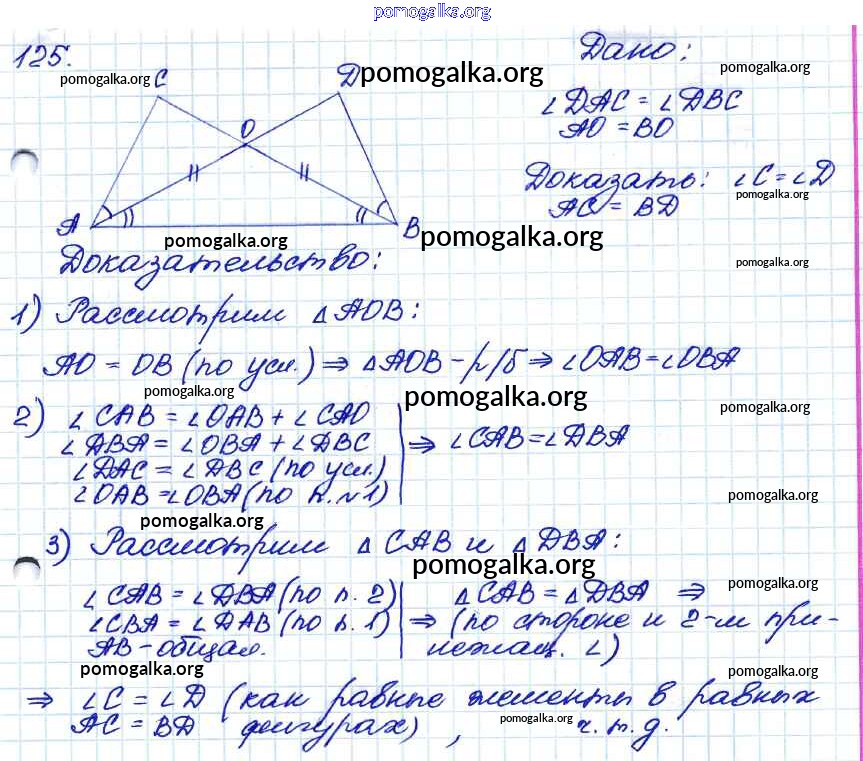 pomogalka.org
125.
pomogalka.org
C
D
pomogalka.org
O
A
B
Дано:
pomogalka.org
∠DAC = ∠DBC
AO = BO
Доказать: ∠C = ∠D
pomogalka.org
AC = BD
pomogalka.org
pomogalka.org
pomogalka.org
Доказательство:
1) Рассмотрим △AOB:
AO = OB (по усл.) ⇒ △AOB – р/б ⇒ ∠OAB = ∠OBA
pomogalka.org
pomogalka.org
pomogalka.org
2) ∠CAB = ∠OAB + ∠CAO
∠DBA = ∠OBA + ∠DBC
∠DAC = ∠DBC (по усл.)
∠OAB = ∠OBA (по п. №1)
⇒ ∠CAB = ∠DBA
pomogalka.org
pomogalka.org
3) Рассмотрим △CAB и △DBA:
pomogalka.org
pomogalka.org
∠CAB = ∠DBA (по п. 2)
∠CBA = ∠DAB (по п. 1)
AB – общая.
△CAB = △DBA ⇒
⇒ (по стороне и 2-м при-
лежащ. ∠)
pomogalka.org
pomogalka.org
⇒ ∠C = ∠D (как равные элементы в равных
AC = BD фигурах), ч.т.д.
pomogalka.org